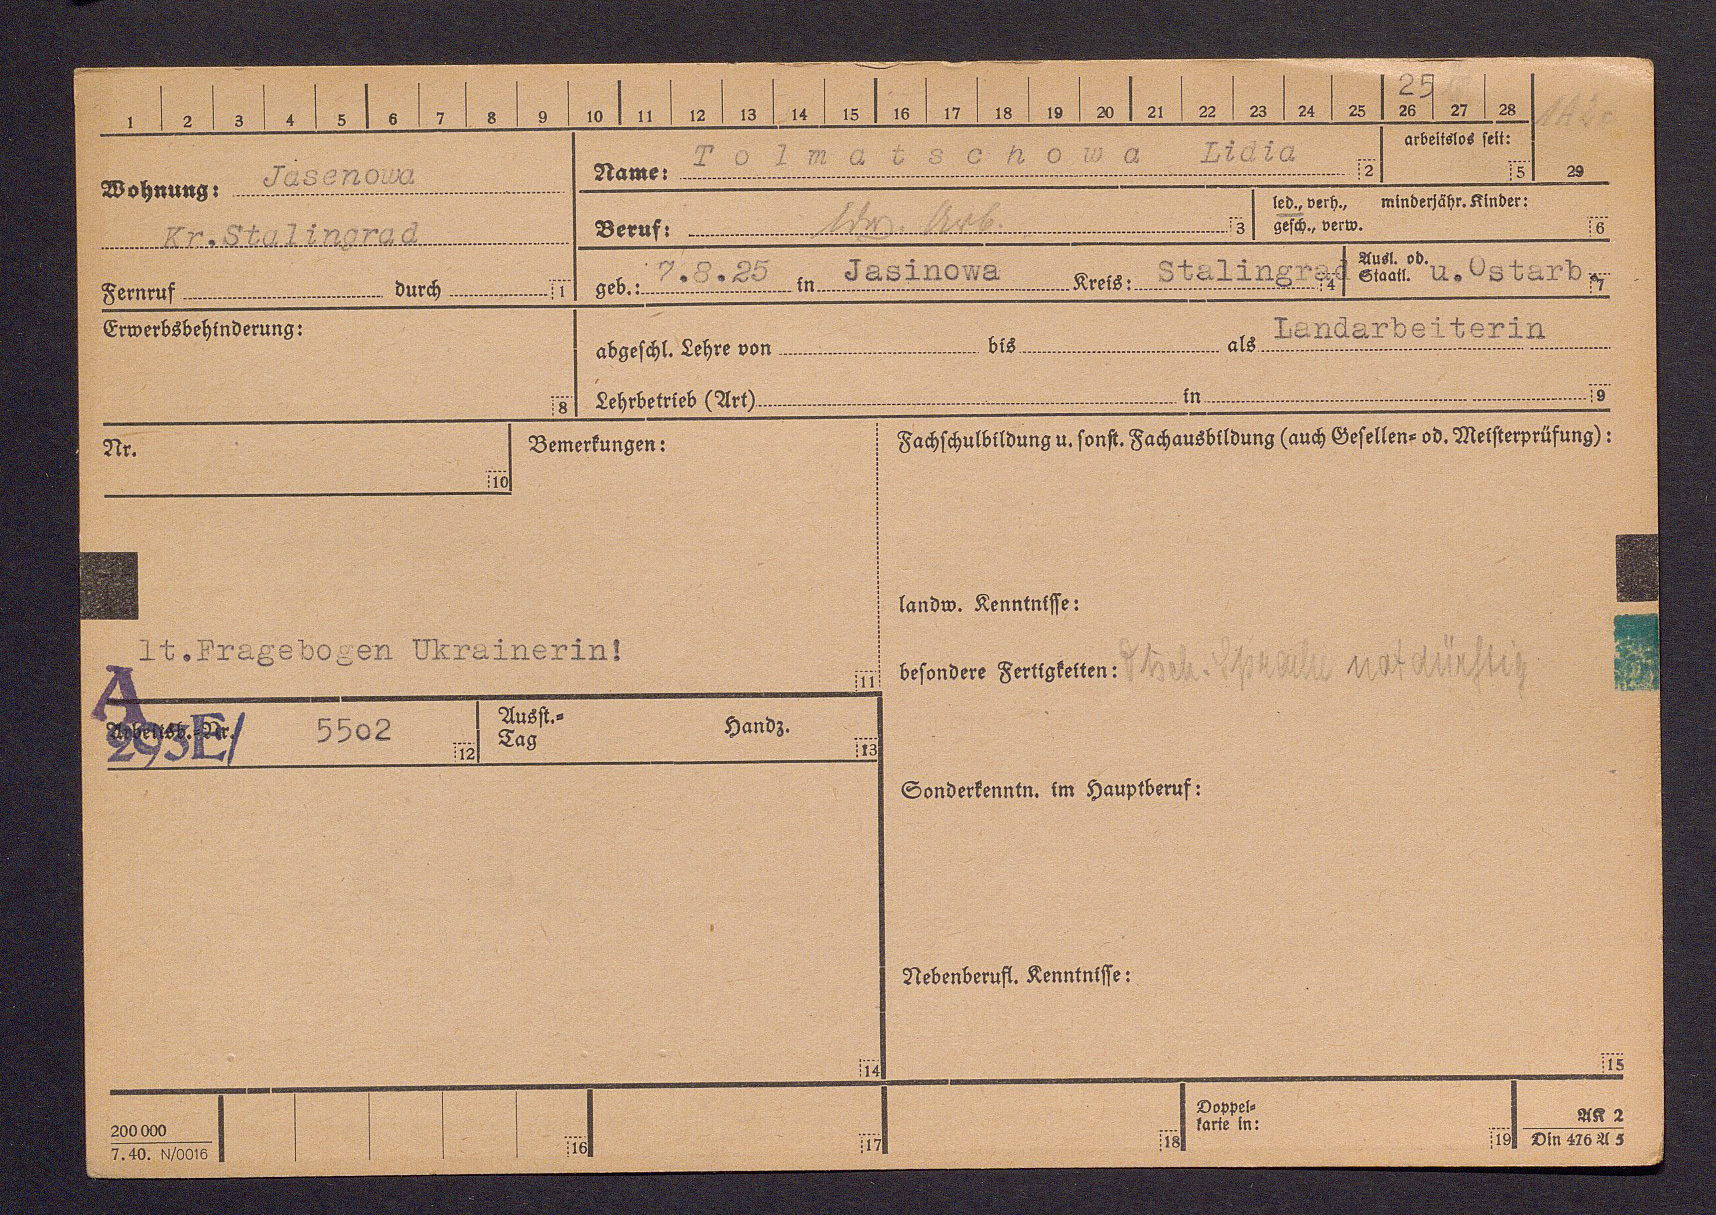 25
1 2 3 4 5 6 7 8 9 10 11 12 13 14 15 16 17 18 19 20 21 22 23 24 25 26 27 28
Wohnung: Jasenowa
Kr.Stalingrad
Fernruf durch 1
Name: Tolmatschowa Lidia 2
arbeitslos seit: 5
29
Beruf: Ldw. Arb. 3
led., verh., gesch., verw. minderjähr. Kinder: 6
geb.: 7.8.25 in Jasinowa Kreis: Stalingrad 4
Ausl. od. Staatl. u.Ostarb. 7
Erwerbsbehinderung: 8
abgeschl. Lehre von bis als Landarbeiterin
Lehrbetrieb (Art) in 9
Nr. 10
Bemerkungen:
lt.Fragebogen Ukrainerin! 11
A
293E/
Arbeitsb.-Nr. 5502 12
Ausst.-
Tag Handz. 13
14
Fachschulbildung u. sonst. Fachausbildung (auch Gesellen- od. Meisterprüfung):
landw. Kenntnisse:
besondere Fertigkeiten: Dtsch. Sprache notdürftig
Sonderkenntn. im Hauptberuf:
Nebenberufl. Kenntnisse:
15
200 000
7. 40. N/0016
16 17 18
Doppel-
karte in: 19
AK 2
Din 476 A 5